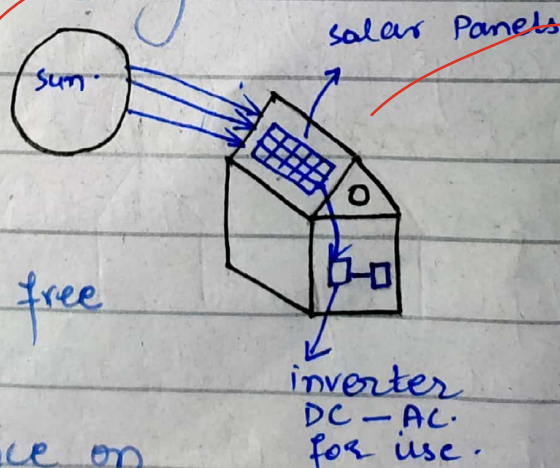 solar Panels
sun.
free
inverter
DC - AC.
for use.
on